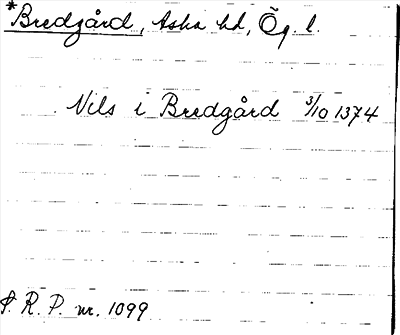 *Bredgård, Aska hd, Ög. l.
Nils i Bredgård 3/10 1374
S. R. P. nr. 1099